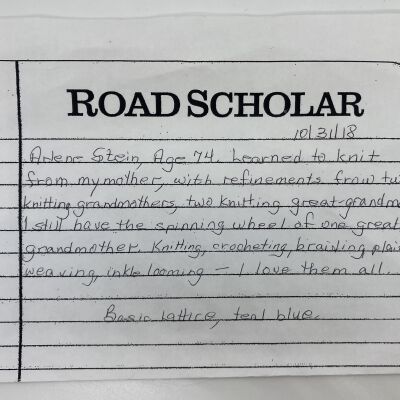 ROAD SCHOLAR
10/31/18
Arlene Stein, Age 74. Learned to knit
from my mother, with refinements from tw
knitting grandmothers, two knitting great-grandm
I still have the spinning wheel of one great
grandmother. Knitting, crocheting, braiding, plai
weaving, inkle looming – I love them all.
Basic lattice, teal blue.